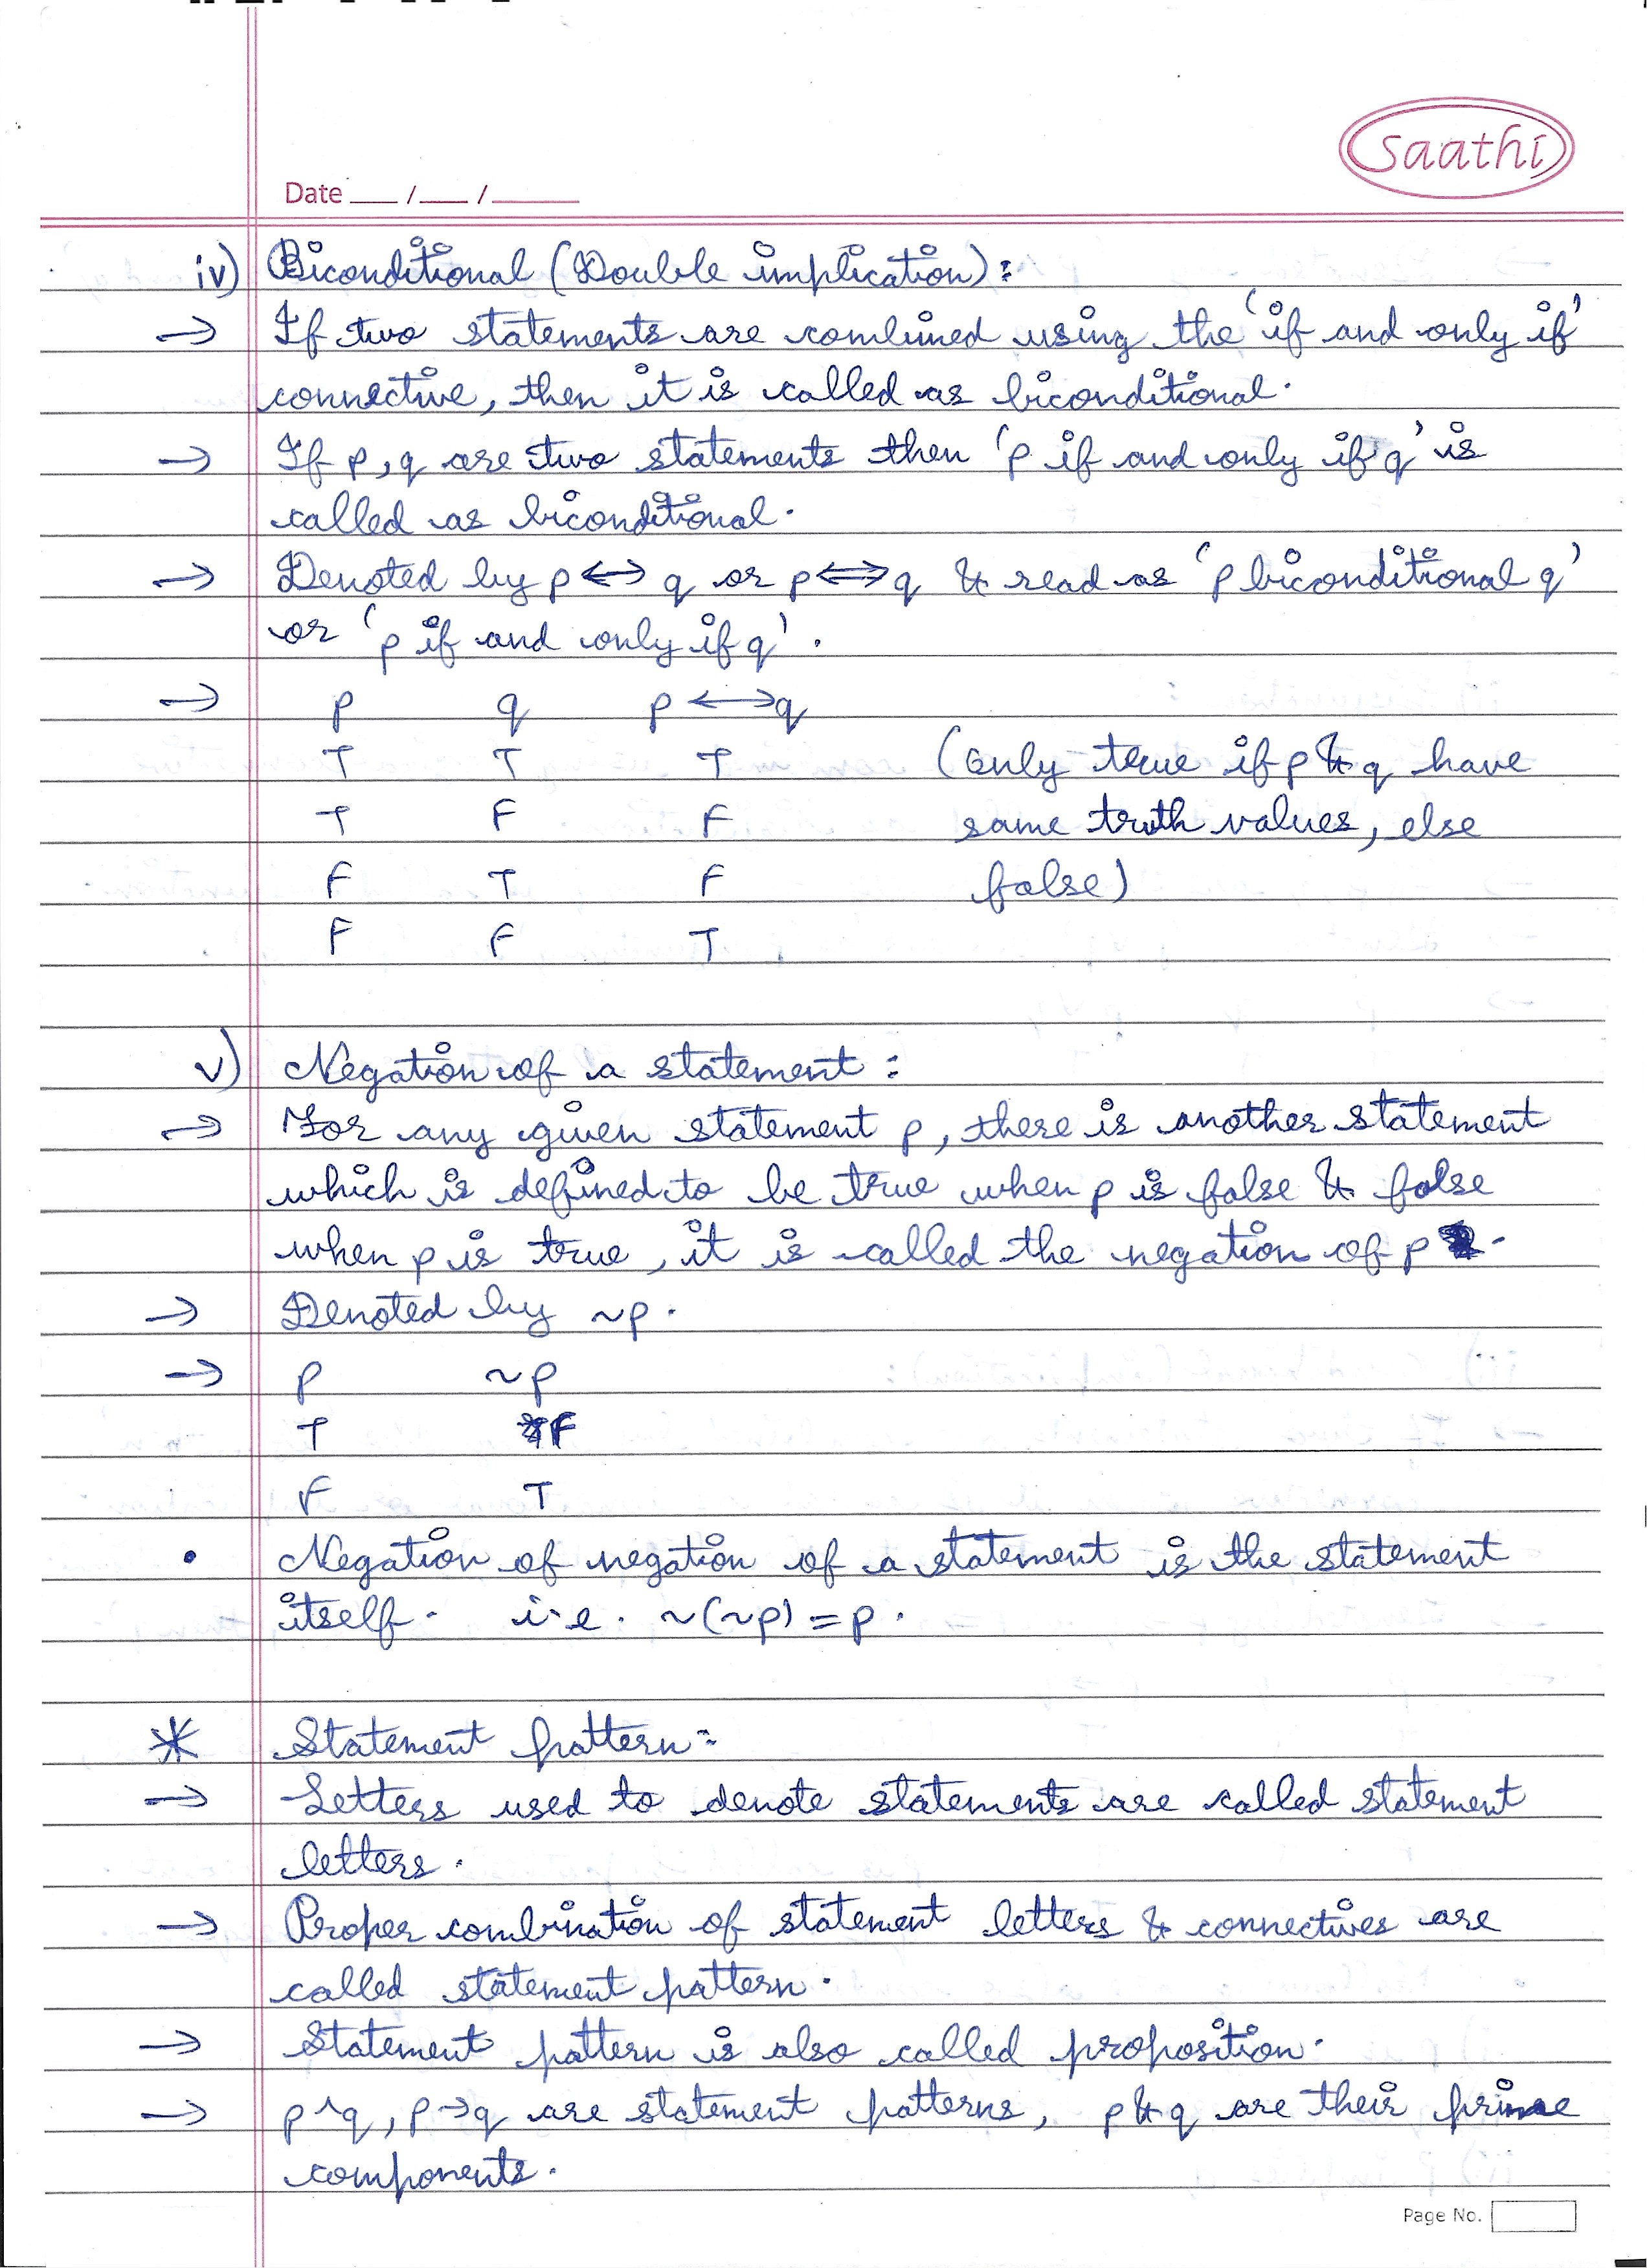 saathi
Date ___/___/_____
iv) Biconditional (Double implication):
→ If two statements are combined using the 'if and only if'
connective, then it is called as biconditional.
→ If p, q are two statements then 'p if and only if q' is
called as biconditional.
→ Denoted by p ↔ q or p ⟺ q & read as 'p biconditional q'
or 'p if and only if q'.
→ p q p ⟷ q
T T T (only true if p & q have
T F F same truth values, else
F T F false)
F F T
v) Negation of a statement:
→ For any given statement p, there is another statement
which is defined to be true when p is false & false
when p is true, it is called the negation of p.
→ Denoted by ~p.
→ p ~p
T F
F T
• Negation of negation of a statement is the statement
itself. i.e. ~(~p) = p.
* Statement pattern:
→ Letters used to denote statements are called statement
letters.
→ Proper combination of statement letters & connectives are
called statement pattern.
→ Statement pattern is also called proposition.
→ p^q, p→q are statement patterns, p & q are their prime
components.
Page No.